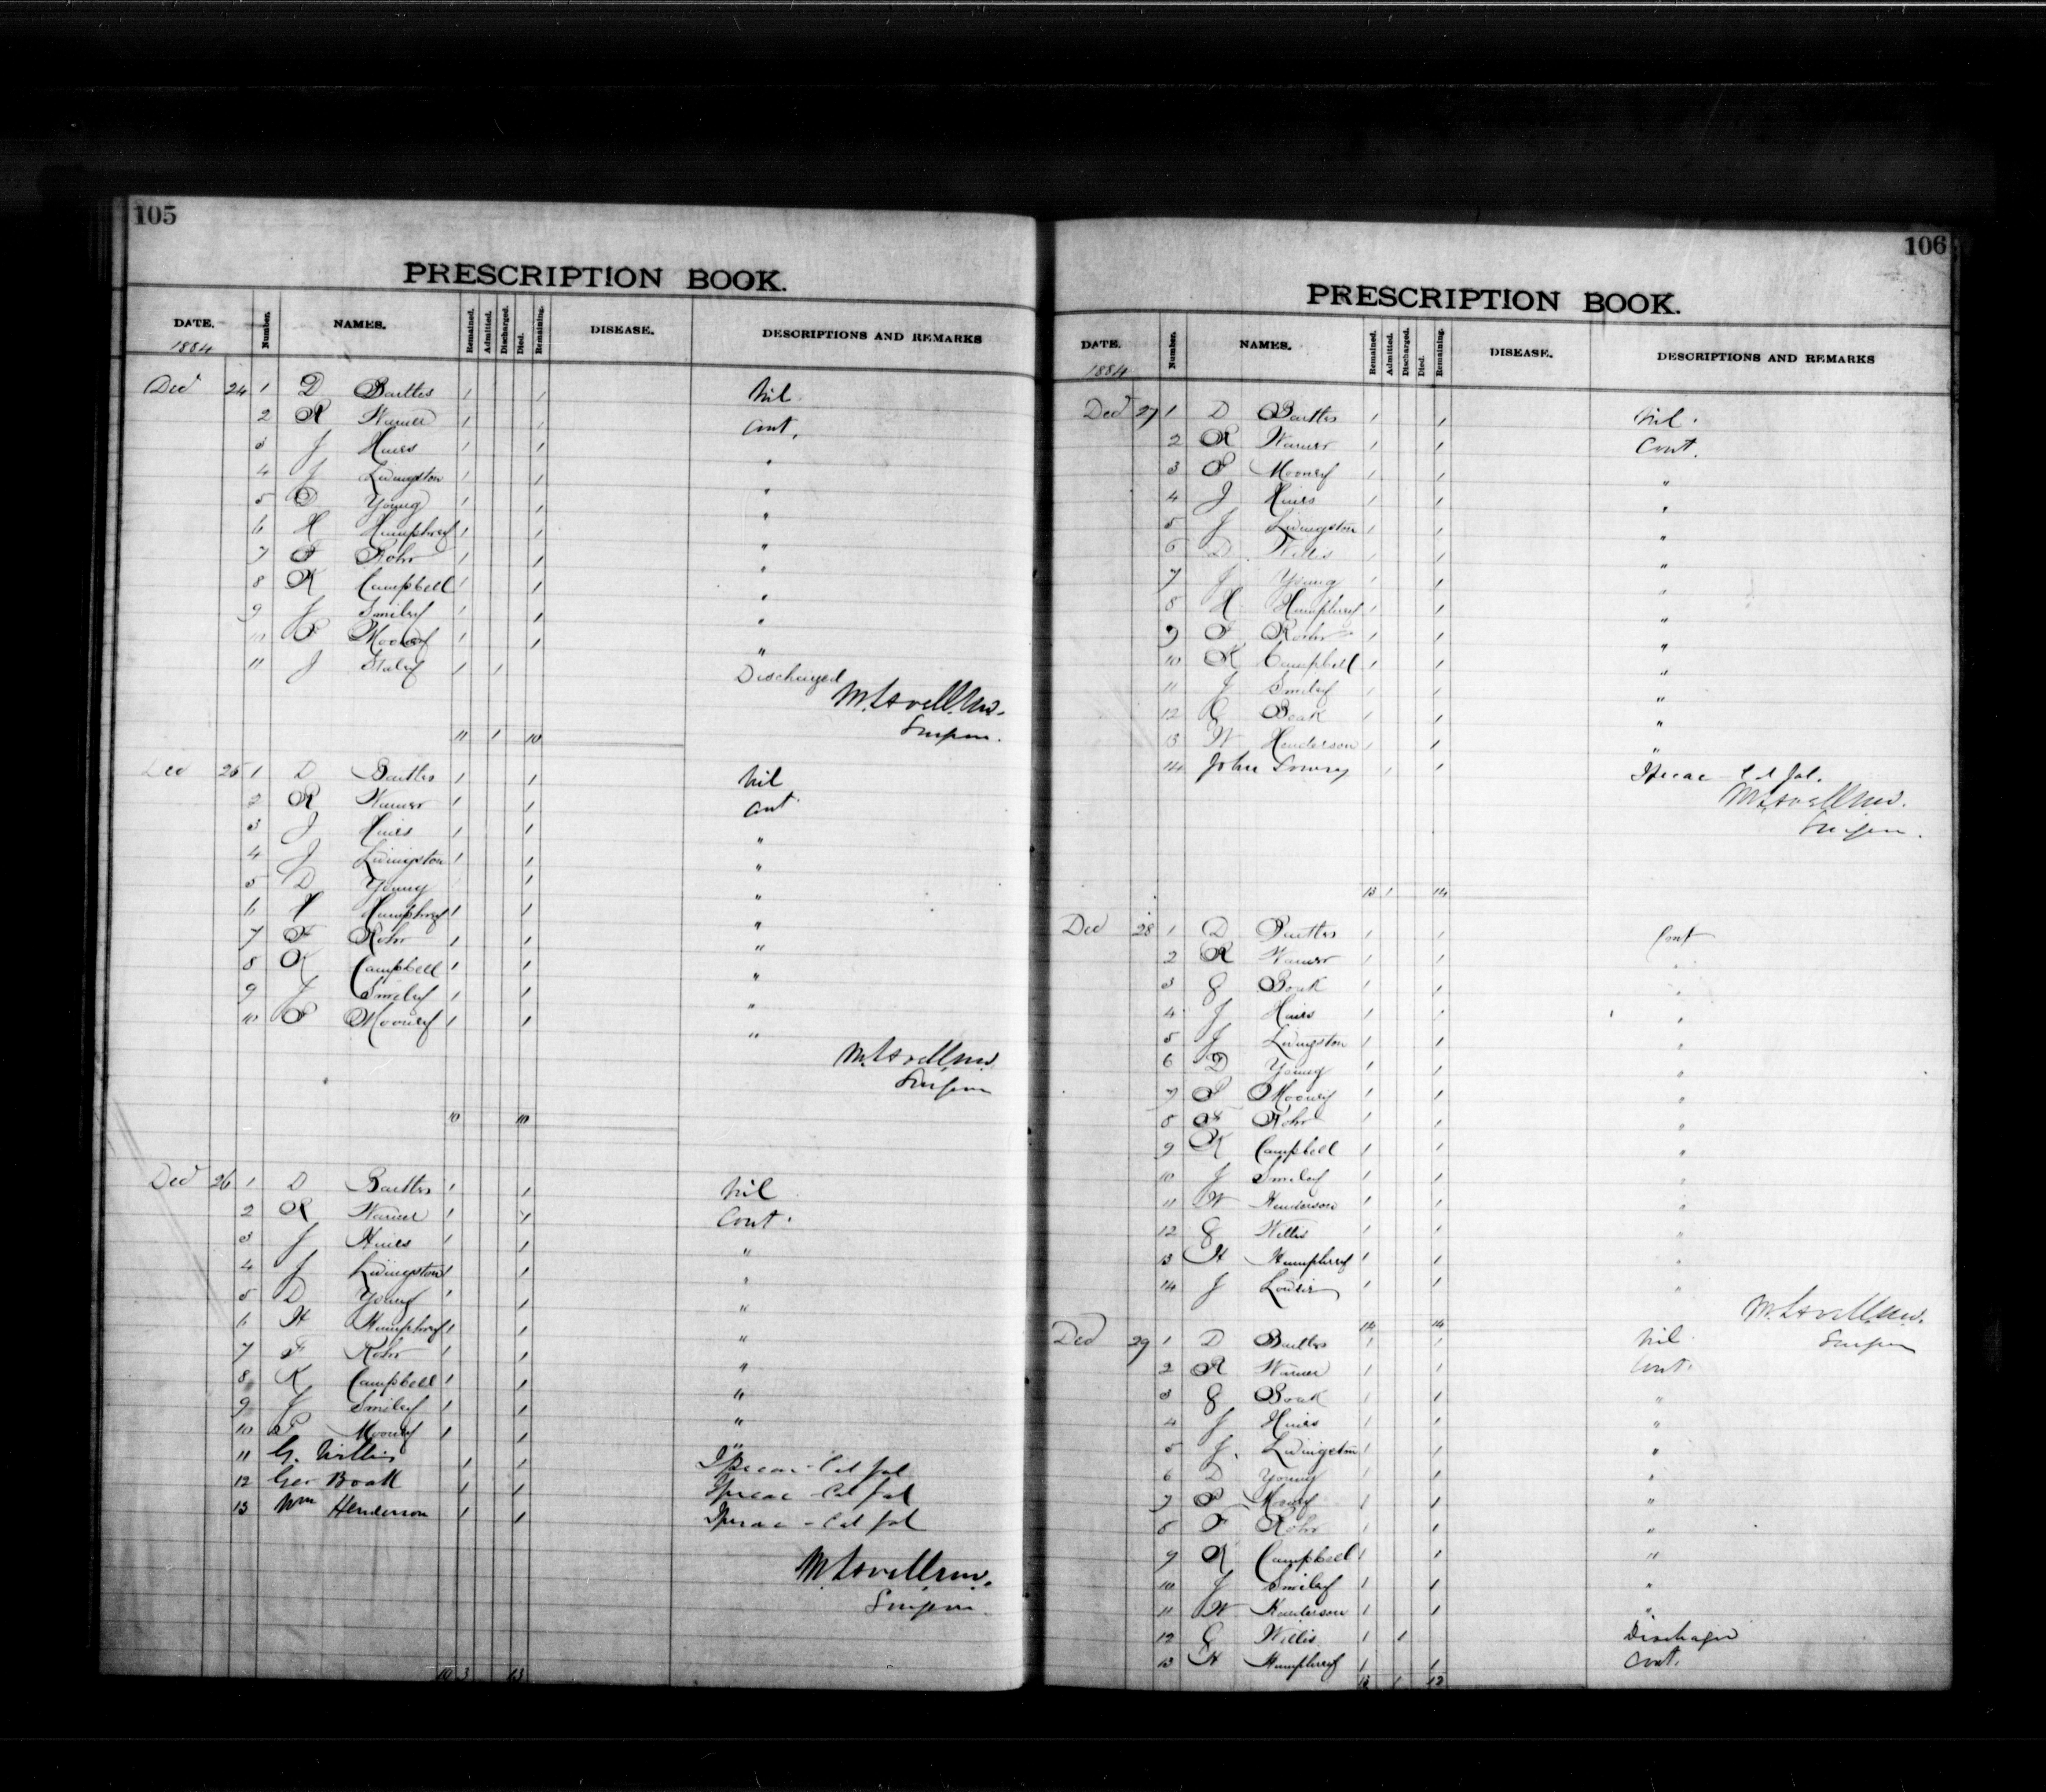 105
PRESCRIPTION BOOK.
DATE. Number. NAMES. Remained. Admitted. Discharged. Died. Remaining. DISEASE. DESCRIPTIONS AND REMARKS
1884
Dec 24 1 D Barttes 1 1 Nil.
2 R Warner 1 1 Cont.
3 J Hires 1 1 "
4 J Livingston 1 1 "
5 D Young 1 1 "
6 H Humphrey 1 1 "
7 F Rohr 1 1 "
8 K Campbell 1 1 "
9 J Smiley 1 1 "
10 P Mooney 1 1 "
11 J Staley 1 1 Discharged
M. Lovell M.D.
Surgeon.
11 1 10
Dec 25 1 D Barttes 1 1 Nil
2 R Warner 1 1 Cont
3 J Hires 1 1 "
4 J Livingston 1 1 "
5 D Young 1 "
6 H Humphrey 1 1 "
7 F Rohr 1 1 "
8 K Campbell 1 1 "
9 J Smiley 1 1 "
10 P Mooney 1 1 "
M. Lovell M.D.
Surgeon
10 10
Dec 26 1 D Barttes 1 1 Nil
2 R Warner 1 1 Cont.
3 J Hires 1 1 "
4 J Livingston 1 1 "
5 D Young 1 1 "
6 H Humphrey 1 1 "
7 F Rohr 1 1 "
8 K Campbell 1 1 "
9 J Smiley 1 1 "
10 P Mooney 1 1 "
11 G. Willis 1 1 Ipecac - Cal Jal
12 Geo Boak 1 1 Ipecac - Cal Jal
13 Wm Henderson 1 1 Ipecac - Cal Jal
M. Lovell M.D.
Surgeon.
10 3 13
106
PRESCRIPTION BOOK.
DATE. Number. NAMES. Remained. Admitted. Discharged. Died. Remaining. DISEASE. DESCRIPTIONS AND REMARKS
1884
Dec 27 1 D Barttes 1 1 Nil.
2 R Warner 1 1 Cont.
3 P Mooney 1 1 "
4 J Hires 1 1 "
5 J Livingston 1 1 "
6 D Willis 1 1 "
7 J Young 1 1 "
8 H Humphrey 1 1 "
9 F Rohr 1 1 "
10 K Campbell 1 1 "
11 J Smiley 1 1 "
12 G Boak 1 1 "
13 W Henderson 1 1 "
14 John Lowry 1 1 Ipecac - Cal Jal.
M. Lovell M.D.
Surgeon.
13 1 14
Dec 28 1 D Barttes 1 1 Cont
2 R Warner 1 1 "
3 G Boak 1 1 "
4 J Hires 1 1 "
5 J Livingston 1 1 "
6 D Young 1 1 "
7 P Mooney 1 1 "
8 F Rohr 1 1 "
9 K Campbell 1 1 "
10 J Smiley 1 1 "
11 W Henderson 1 1 "
12 G Willis 1 1 "
13 H Humphrey 1 1 "
14 J 1 1 "
M. Lovell M.D.
14 14
Surgeon
Dec 29 1 D Barttes 1 1 Nil
2 R Warner 1 1 Cont.
3 G Boak 1 1 "
4 J Hires 1 1 "
5 J. Livingston 1 1 "
6 D Young 1 1 "
7 P Mooney 1 1 "
8 F Rohr 1 1 "
9 K Campbell 1 1 "
10 J Smiley 1 1 "
11 W Henderson 1 1 "
12 G Willis 1 1 Discharged
13 H Humphrey 1 1 Cont.
13 1 12